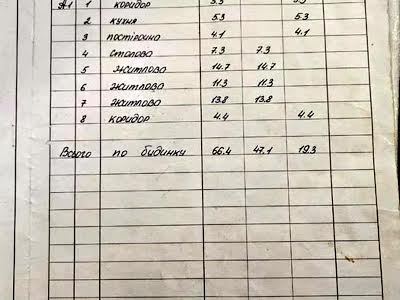 А1 1 коридор 5.5 5.5
2 кухня 5.3 5.3
3 постірочна 4.1 4.1
4 столова 7.3 7.3
5 житлова 14.7 14.7
6 житлова 11.3 11.3
7 житлова 13.8 13.8
8 коридор 4.4 4.4
Всього по будинку 66.4 47.1 19.3